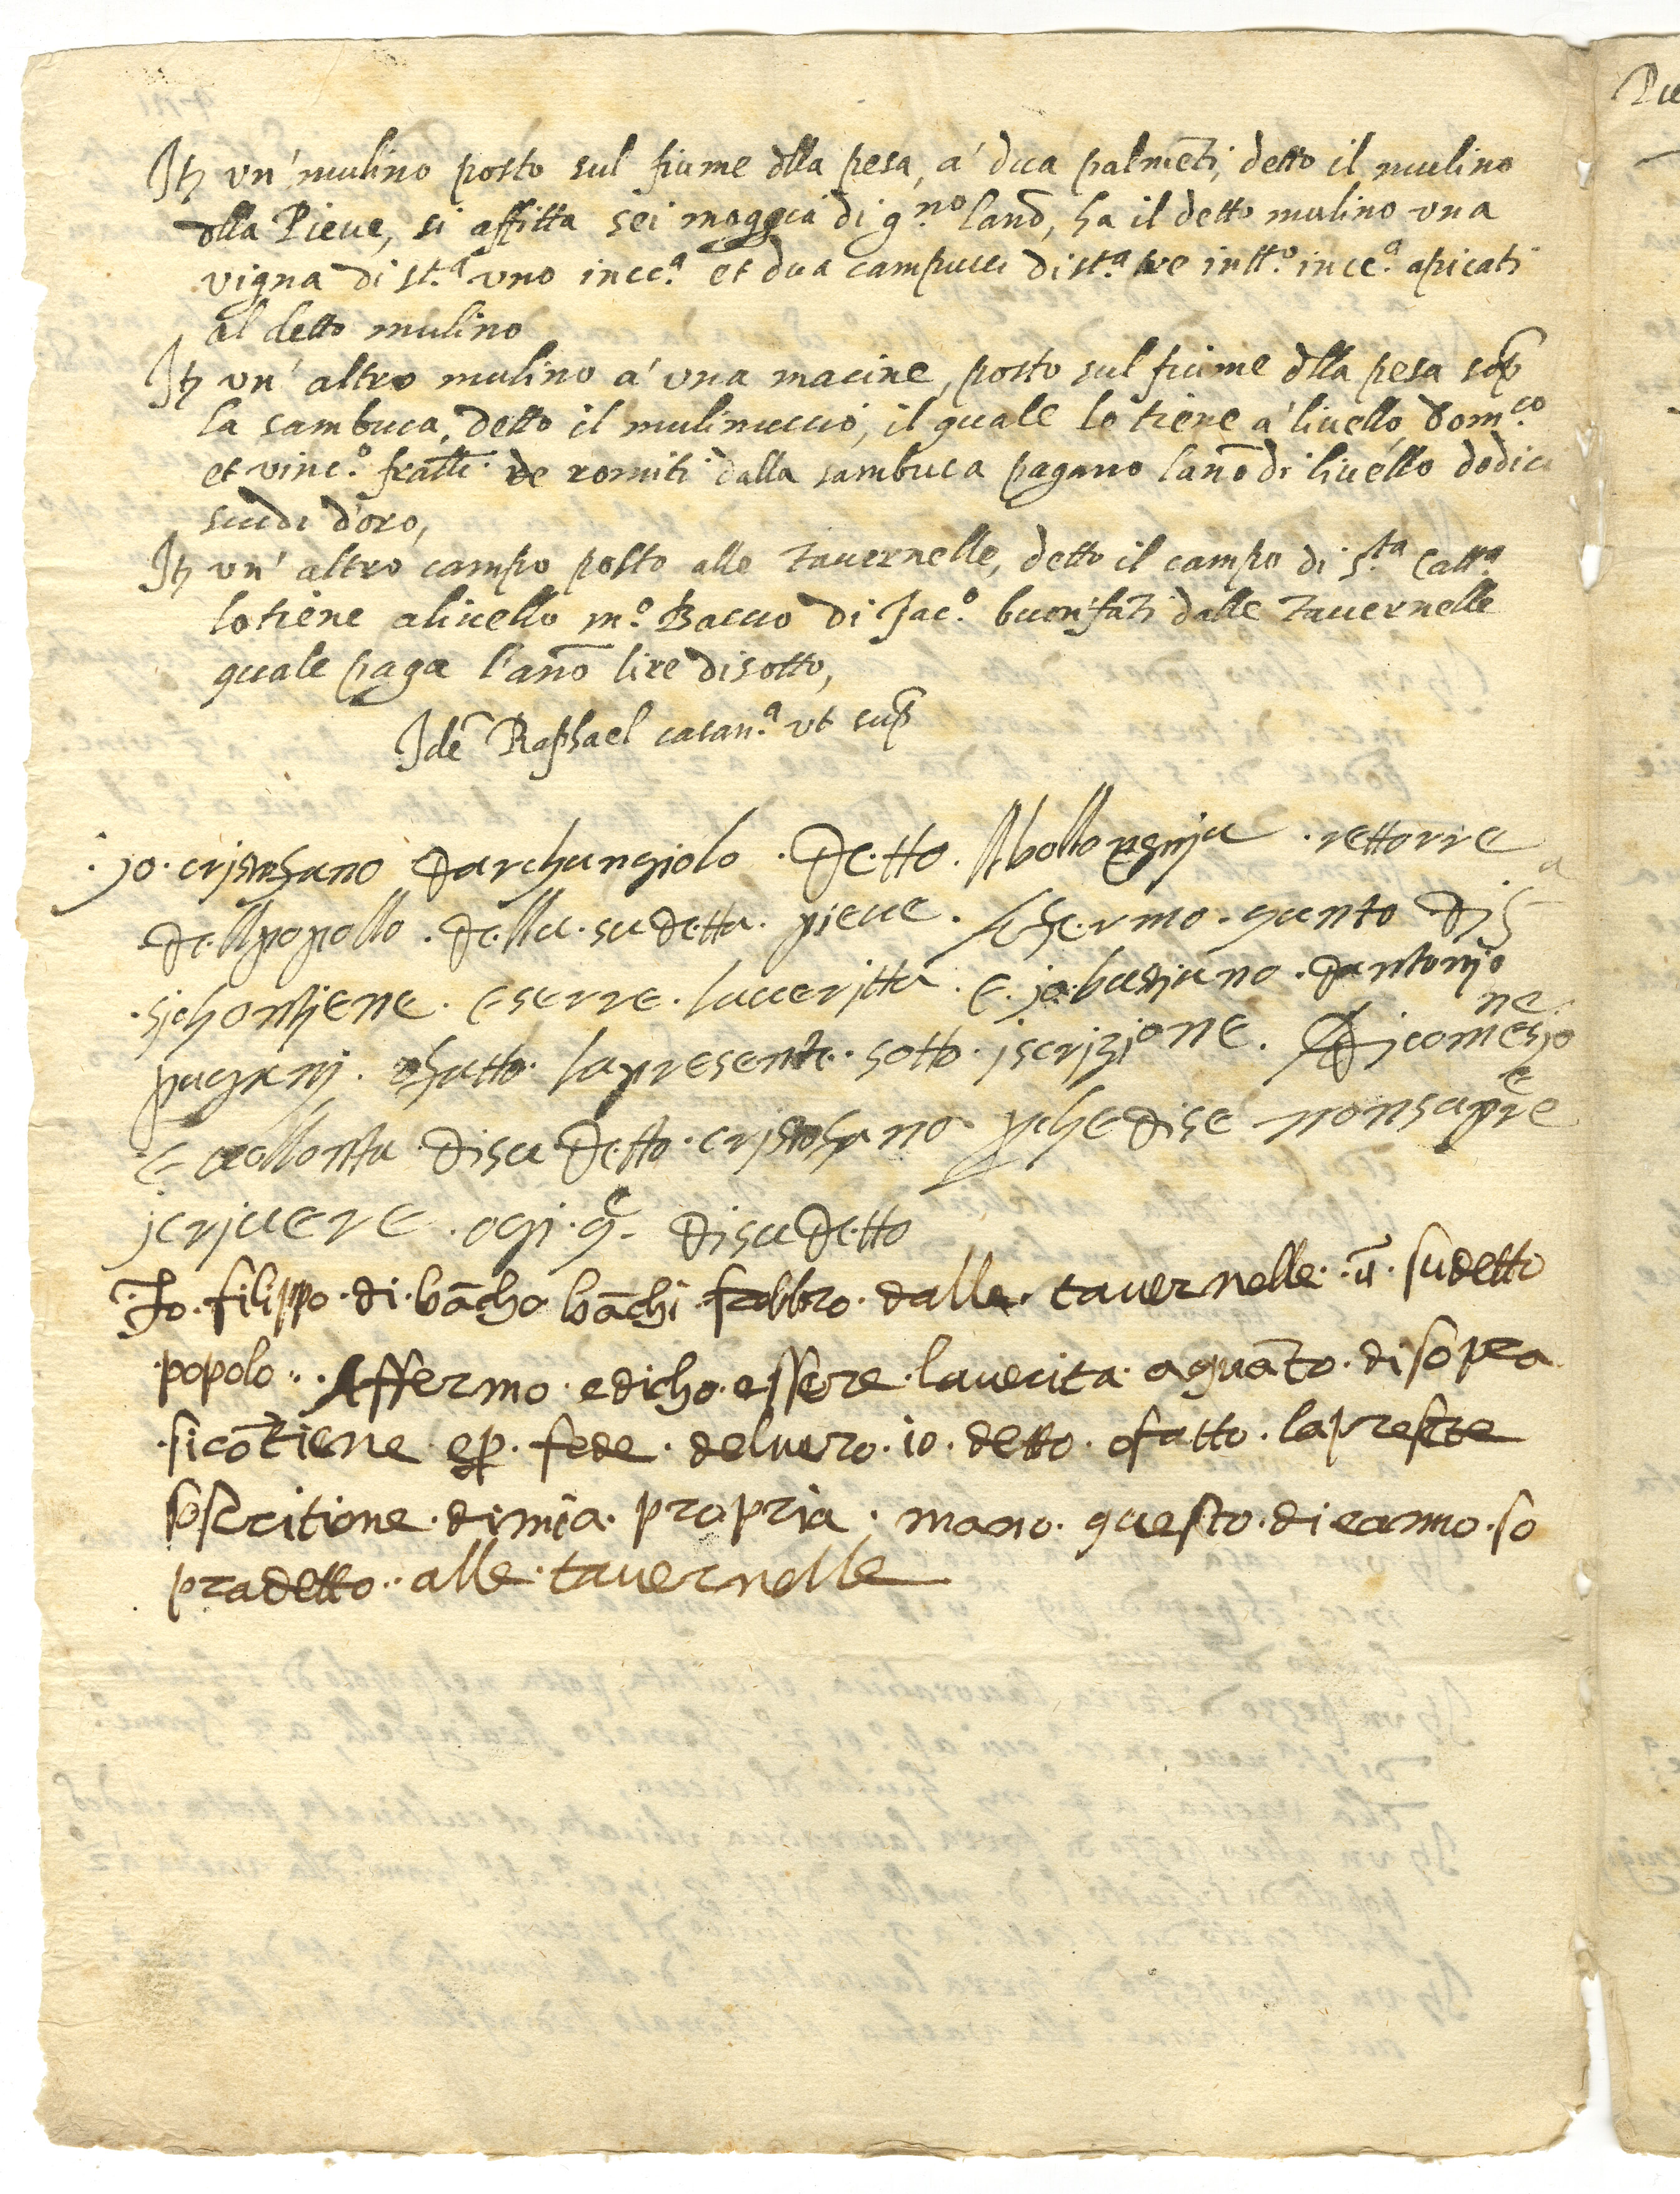 Itē un' mulino posto sul fiume dlla pesa, a' dua palmēti, detto il mulino
dlla Pieue, si affitta sei moggia di g.no lanō, ha il detto mulino una
vigna di st.a uno incc.a et dua campucci di st.a tre intt.o incc.a apicati
al detto mulino
Itē un' altro mulino a' una macine, posto sul fiume dlla pesa sup
la sambuca, detto il mulinuccio, il quale lo tiene a' liuello Dom.co
et vinc.o fratlli de romiti dalla sambuca pagano lanō di liuello dodici
scudi d'oro,
Itē un' altro campo posto alle tauernelle, detto il campo di S.ta Catt.a
lo tiene aliuello m.o Baccio di Jac.o buonfati dalle tauernelle
quale paga l'anō lire disotto,
Idē Raphael casan.a ut sup
.jo. cristofano darchangiolo . detto . rettorre
dellpopollo . della . sudetta . pieue . afhermo . quanto dis
sichontiene . eserre . laueritta . e . jo . bastiano . dantonjo
paganj . ofatto . lapresente . sotto . iscrizione .
e uollonta disudetto . cristofano . pchedise nonsapre
jcrjuere . ogi . disudetto
Io . filippo . di . bācho bāchi . fabbro . dalle . tauernelle . . sudetto
popolo . . Affermo . edicho . essere . lauerita . aquāto . disopra
.sicōtiene . ep . fede . deluero . io . detto . ofatto . lapresēte
soscritione . dimia . propria . mano . questo . dieanno . so
pradetto . . alle . tauernelle